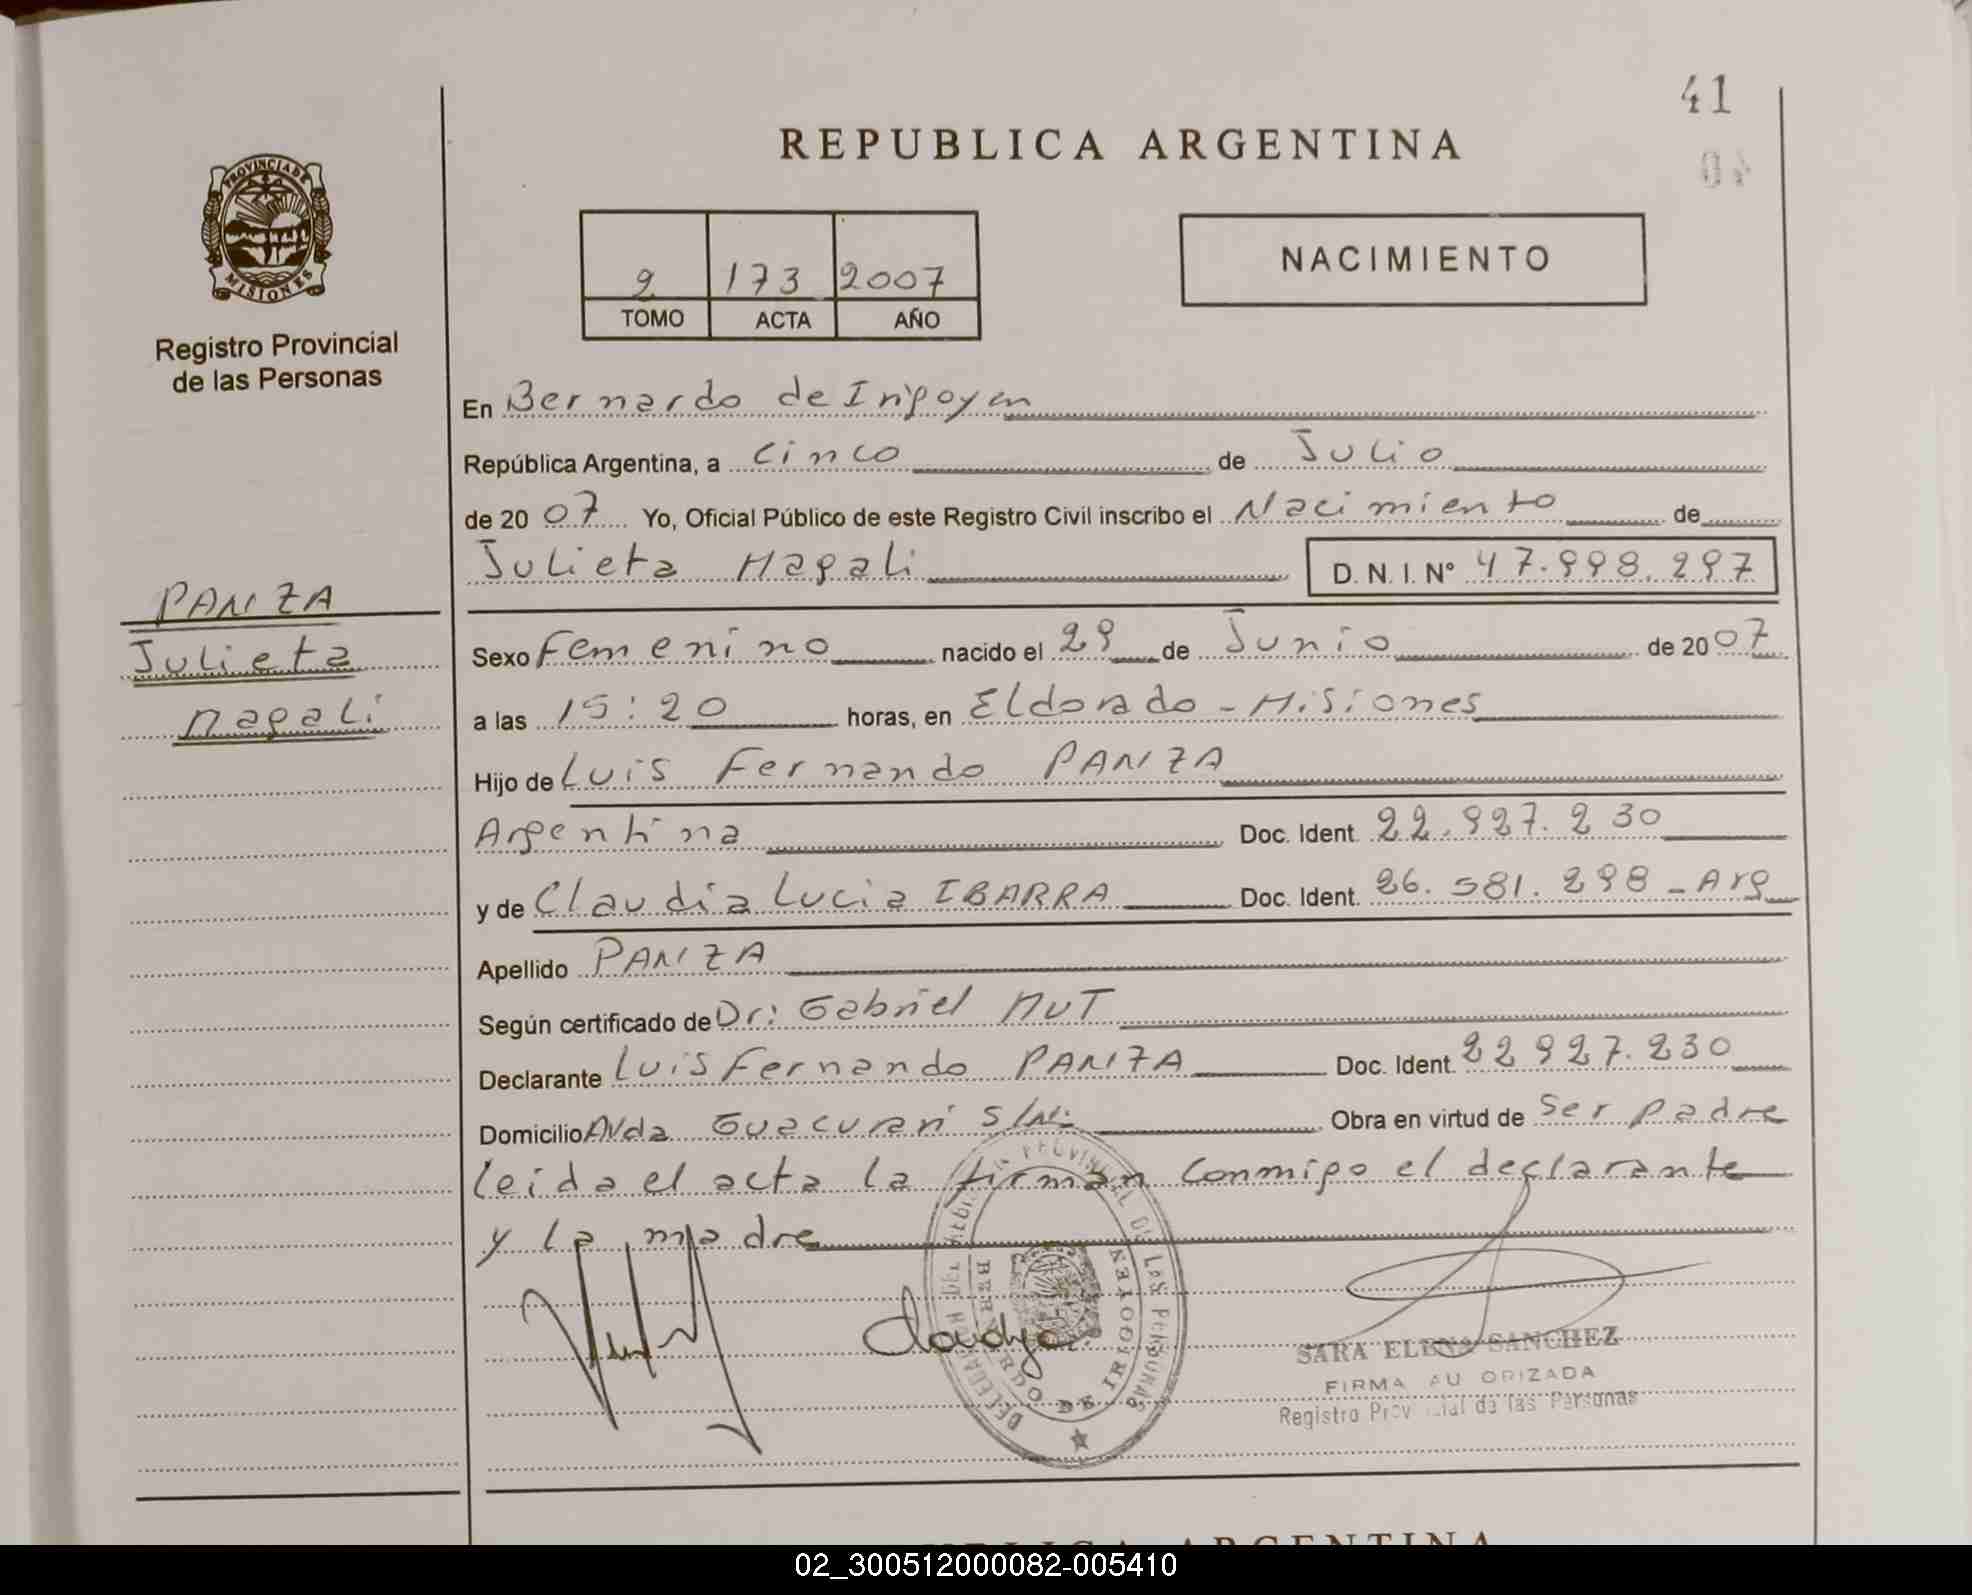 41
REPUBLICA ARGENTINA
PROVINCIA DE MISIONES
NACIMIENTO
2 173 2007
TOMO ACTA AÑO
Registro Provincial
de las Personas
En Bernardo de Irigoyen
República Argentina, a cinco de Julio
de 2007 Yo, Oficial Público de este Registro Civil inscribo el Nacimiento de
Julieta Magali D. N. I. Nº 47.998.297
PANIZA
Julieta
Magali
Sexo Femenino nacido el 29 de Junio de 2007
a las 15:20 horas, en Eldorado - Misiones
Hijo de Luis Fernando PANIZA
Argentina Doc. Ident. 22.927.230
y de Claudia Lucia IBARRA Doc. Ident. 26.581.298 - Arg
Apellido PANIZA
Según certificado de Dr: Gabriel MUT
Declarante Luis Fernando PANIZA Doc. Ident. 22927.230
Domicilio Avda Guacurari S/N: Obra en virtud de ser padre
leida el acta la firman conmigo el declarante
y la madre
SARA ELENA SANCHEZ
FIRMA AUTORIZADA
Registro Provincial de las Personas
REPUBLICA ARGENTINA
02_300512000082-005410